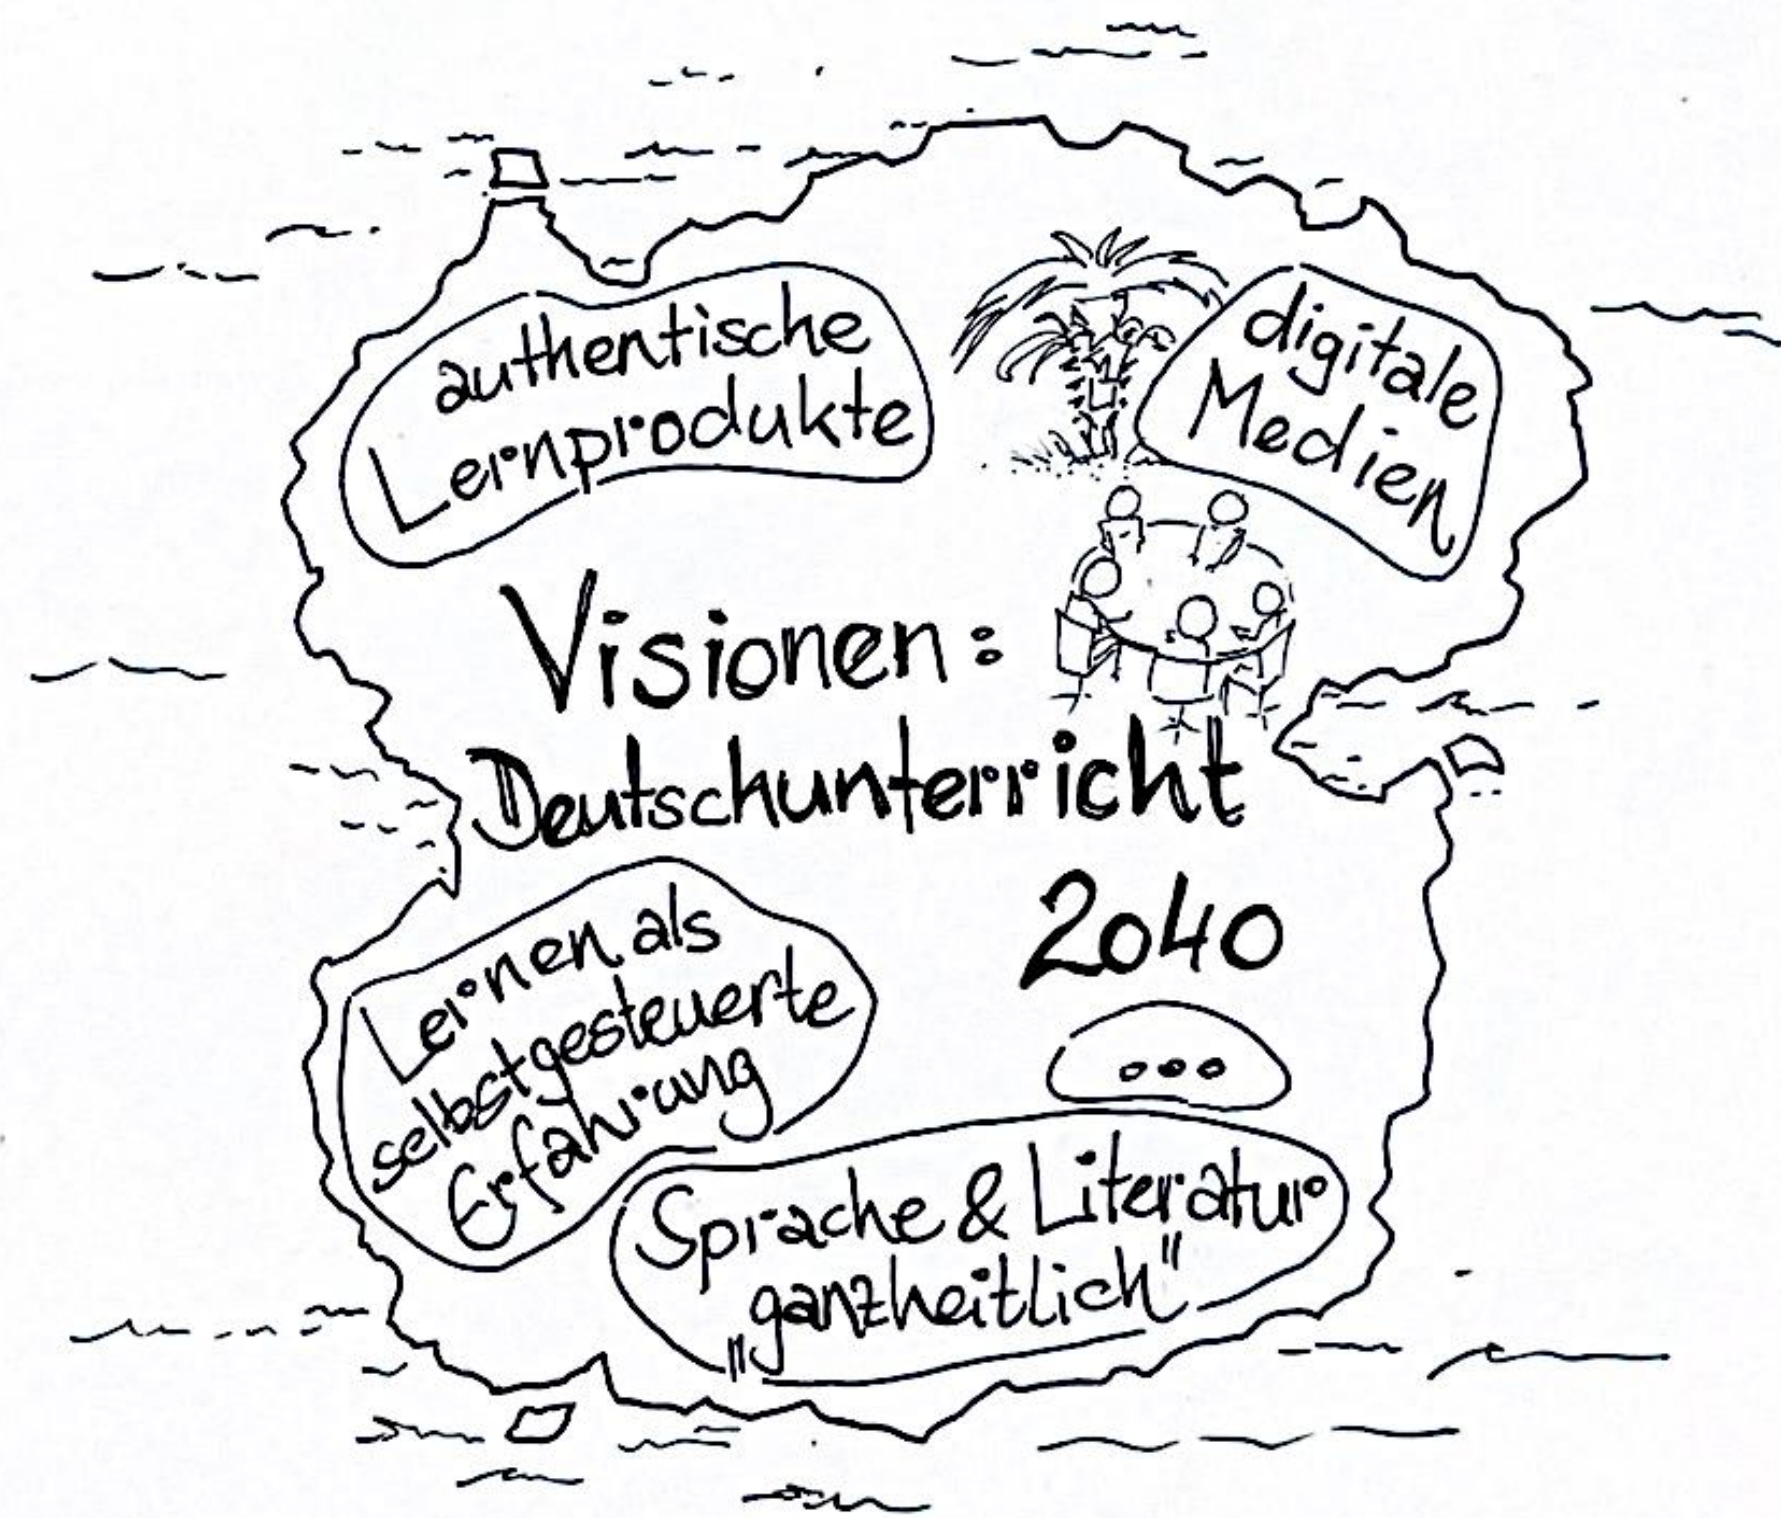 authentische
Lernprodukte
digitale
Medien
Visionen:
Deutschunterricht
2040
Lernen als
selbstgesteuerte
Erfahrung
...
Sprache & Literatur
„ganzheitlich"